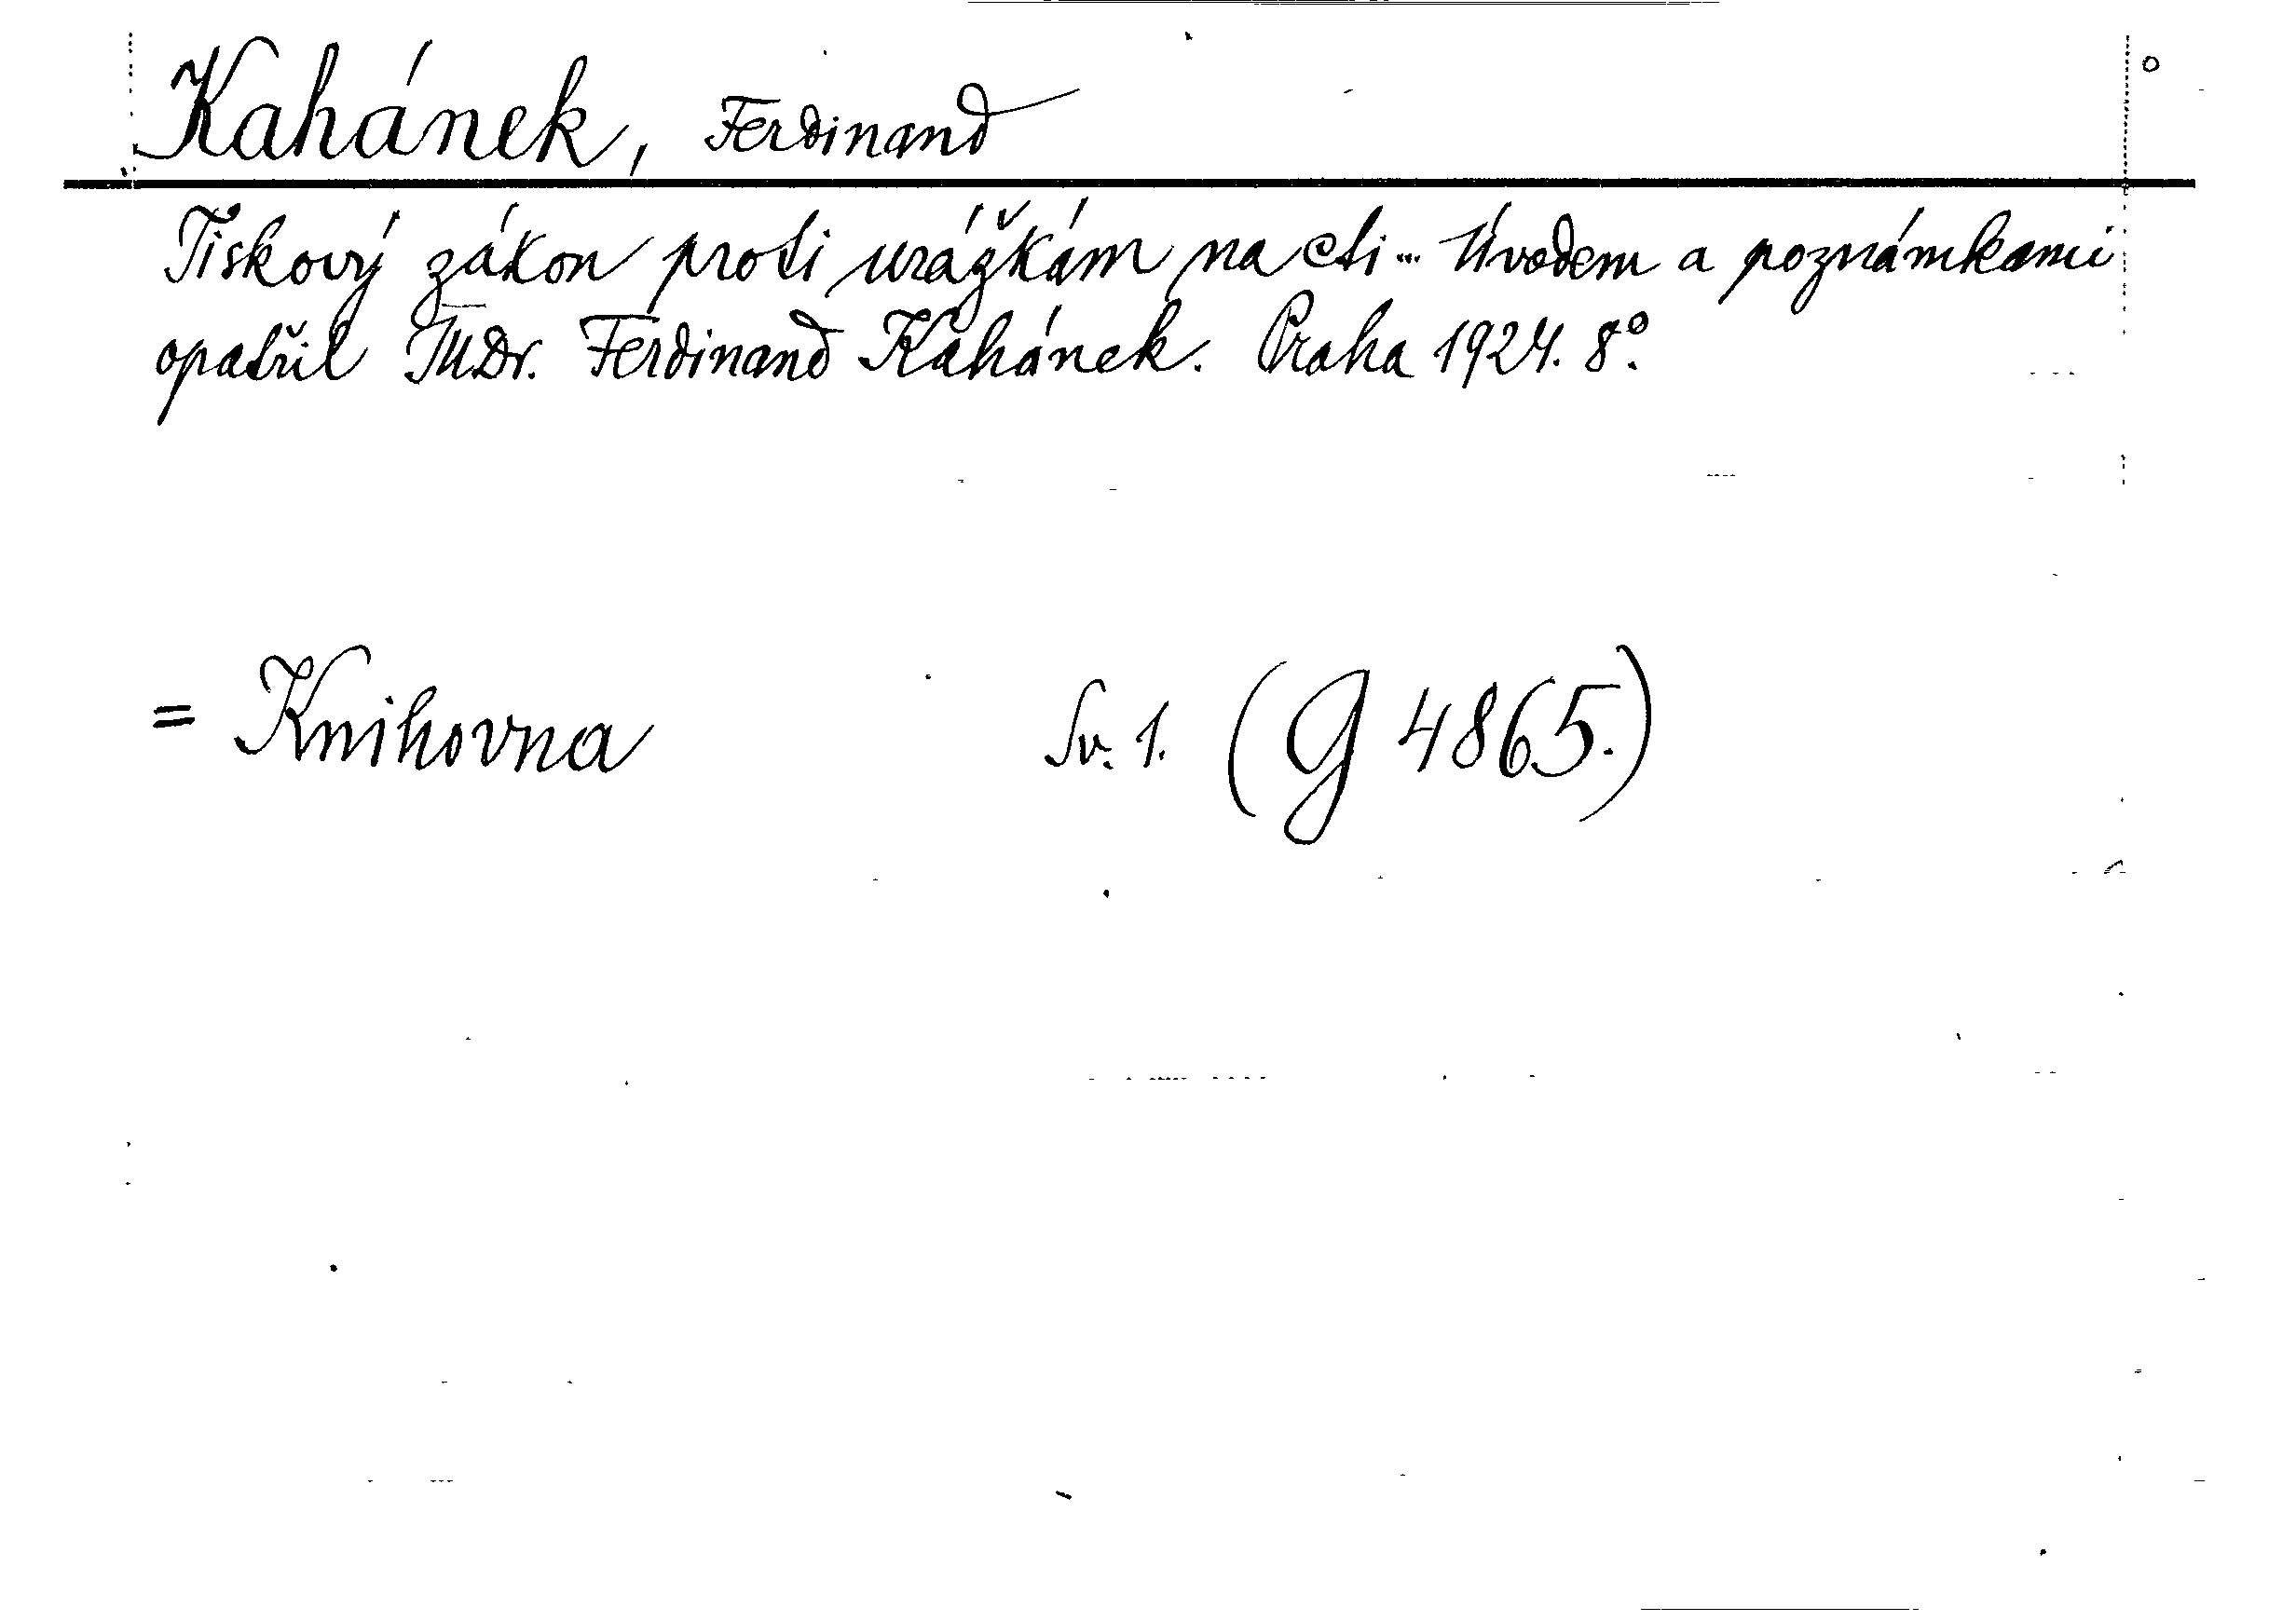 Kahánek, Ferdinand
Tiskový zákon proti urážkám na cti... Úvodem a poznámkami
opatřil JUDr. Ferdinand Kahánek. Praha 1924. 8°.
= Knihovna Sv. 1. (G 4865.)